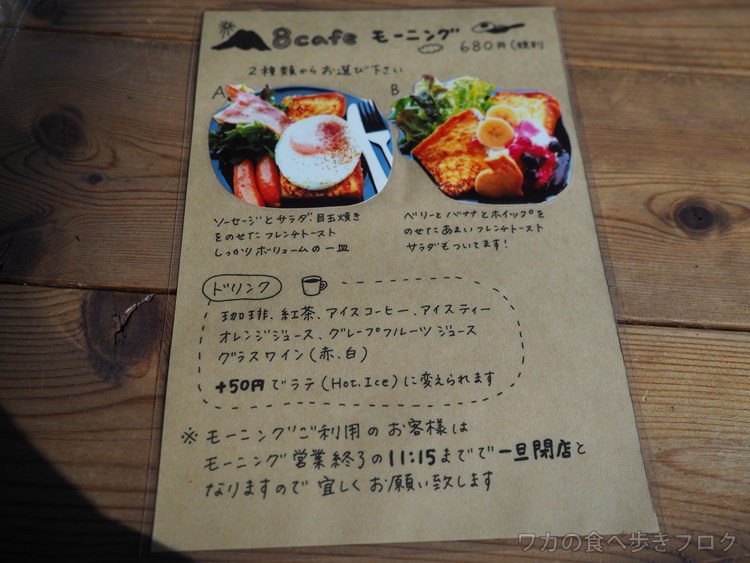 8cafe モーニング
680円(税別
2種類からお選び下さい
A
B
ソーセージとサラダ 目玉焼き
をのせた フレンチトースト
しっかりボリュームの一皿
ベリーとバナナとホイップを
のせた あまいフレンチトースト
サラダもついてます!
ドリンク
珈琲、紅茶、アイスコーヒー、アイスティー
オレンジジュース、グレープフルーツジュース
グラスワイン(赤、白)
+50円でラテ(Hot.Ice)に変えられます
※ モーニングご利用のお客様は
モーニング営業終了の11:15までで一旦閉店と
なりますので 宜しくお願い致します
ワカの食べ歩きブログ